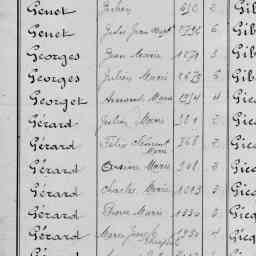 Genet Julien 640 2 Gib
Genet Jules Jean Bapt 1796 6 Gib
Georges Jean Marie 1079 3 Gib
Georges Julien Marie 1675 5 Gib
Georget Armand Marie 1994 4 Gicq
Gérard Julien Marie 281 2 Gicq
Gérard Félix Clément Marie 368 2 Gicq
Gérard Marie 948 3 Gicq
Gérard Charles Marie 1013 3 Gicq
Gérard Pierre Marie 1330 3 Gicq
Gérard Marie Joseph 1930 4 Gicq